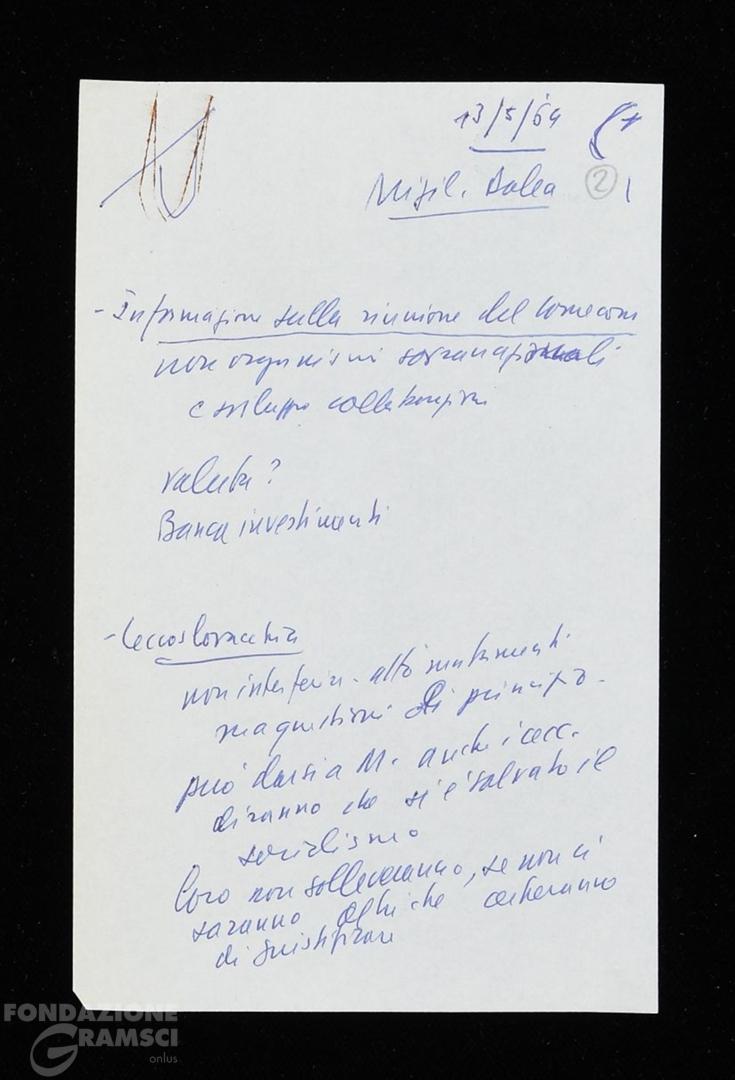 13/5/69
Mizil. Dalea
2
- Informazione sulla riunione del Comecon
non organismi sovranazionali
e sviluppo collaborazione
valuta?
Banca investimenti
- Cecoslovacchia
non interferire. altri mutamenti
ma questioni di principio.
può darsi a M. anche i cec.
diranno che si è salvato il
socialismo
Loro non solleveranno, se non ci
saranno altri che cercheranno
di giustificare
FONDAZIONE
GRAMSCI
onlus